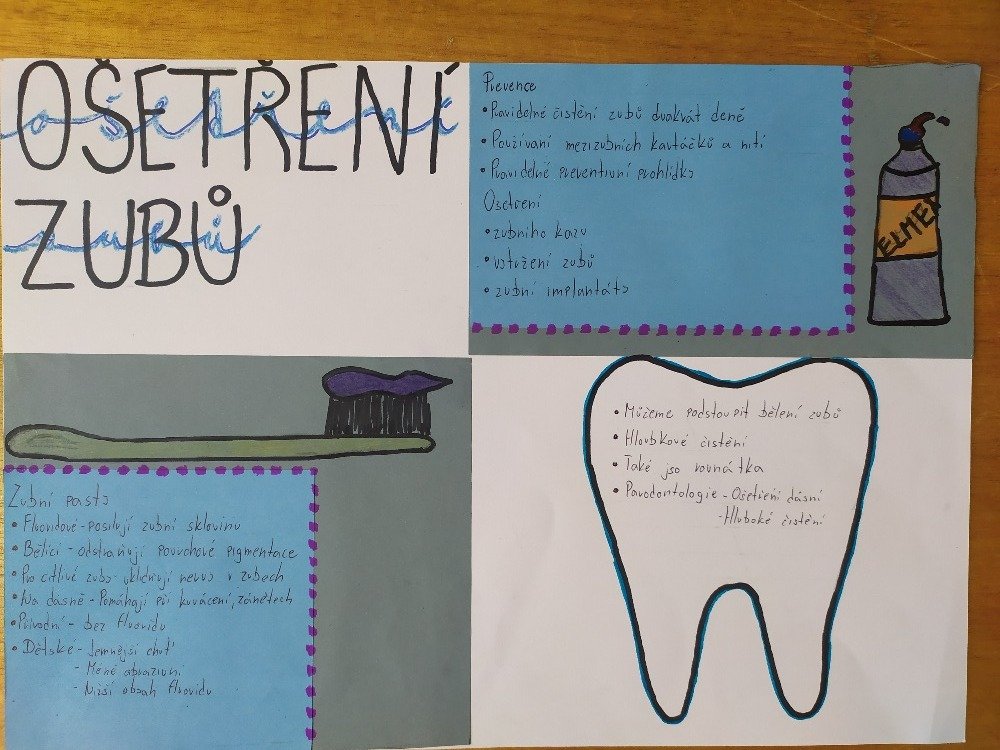 OŠETŘENÍ
ošetření
ZUBŮ
zubů
Prevence
• Pravidelné čistění zubů dvakrát deně
• Používaní mezizubních kartáčků a nití
• Pravidelné preventivní prohlídky
Ošetření
• zubního kazu
• vstužení zubů
• zubní implantáty
ELMEX
Zubní pasty
• Fluoridové - posilují zubní sklovinu
• Bělící - odstraňují povrchové pigmentace
• Pro citlivé zuby - uklidňují nervy v zubech
• Na dásně - Pomáhají při krvácení, zánětech
• Přírodní - bez fluoridu
• Dětské - Jemnější chuť
- Méně abrazivní
- Nižší obsah fluoridu
• Můžeme podstoupit bělení zubů
• Hloubkové čistění
• Také jso rovnátka
• Parodontologie - Ošetření dásní
- Hluboké čistění